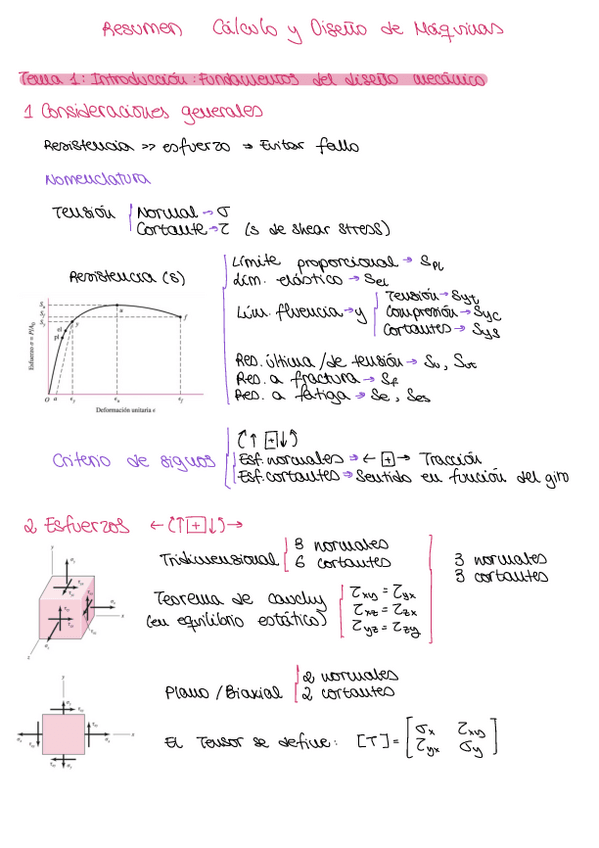 Resumen Cálculo y Diseño de Máquinas
Tema 1: Introducción: Fundamentos del diseño mecánico
1 Consideraciones generales
Resistencia >> esfuerzo → Evitar fallo
Nomenclatura
Tensión
Normal → σ
Cortante → τ (s de shear stress)
Resistencia (S)
Límite proporcional → SPL
Lím. elástico → Sel
Lím. fluencia → y
Tensión → Syt
Compresión → Syc
Cortantes → Sys
Res. última / de tensión → Su, Sut
Res. a fractura → Sf
Res. a fatiga → Se, Ses
Esfuerzo σ = P/A0
Su
Sf
Sy
el
pl
y
u
f
O a εy εu εf
Deformación unitaria ϵ
Criterio de signos
↻↑[+]↓↺
Esf. normales → ←[+]→ Tracción
Esf. cortantes → Sentido en función del giro
2 Esfuerzos ←↻↑[+]↓↺→
Tridimensional
3 normales
6 cortantes
Teorema de Cauchy
(en equilibrio estático)
τxy = τyx
τxz = τzx
τyz = τzy
3 normales
3 cortantes
Plano / Biaxial
2 normales
2 cortantes
El Tensor se define: [T] = [σx τxy
τyx σy]